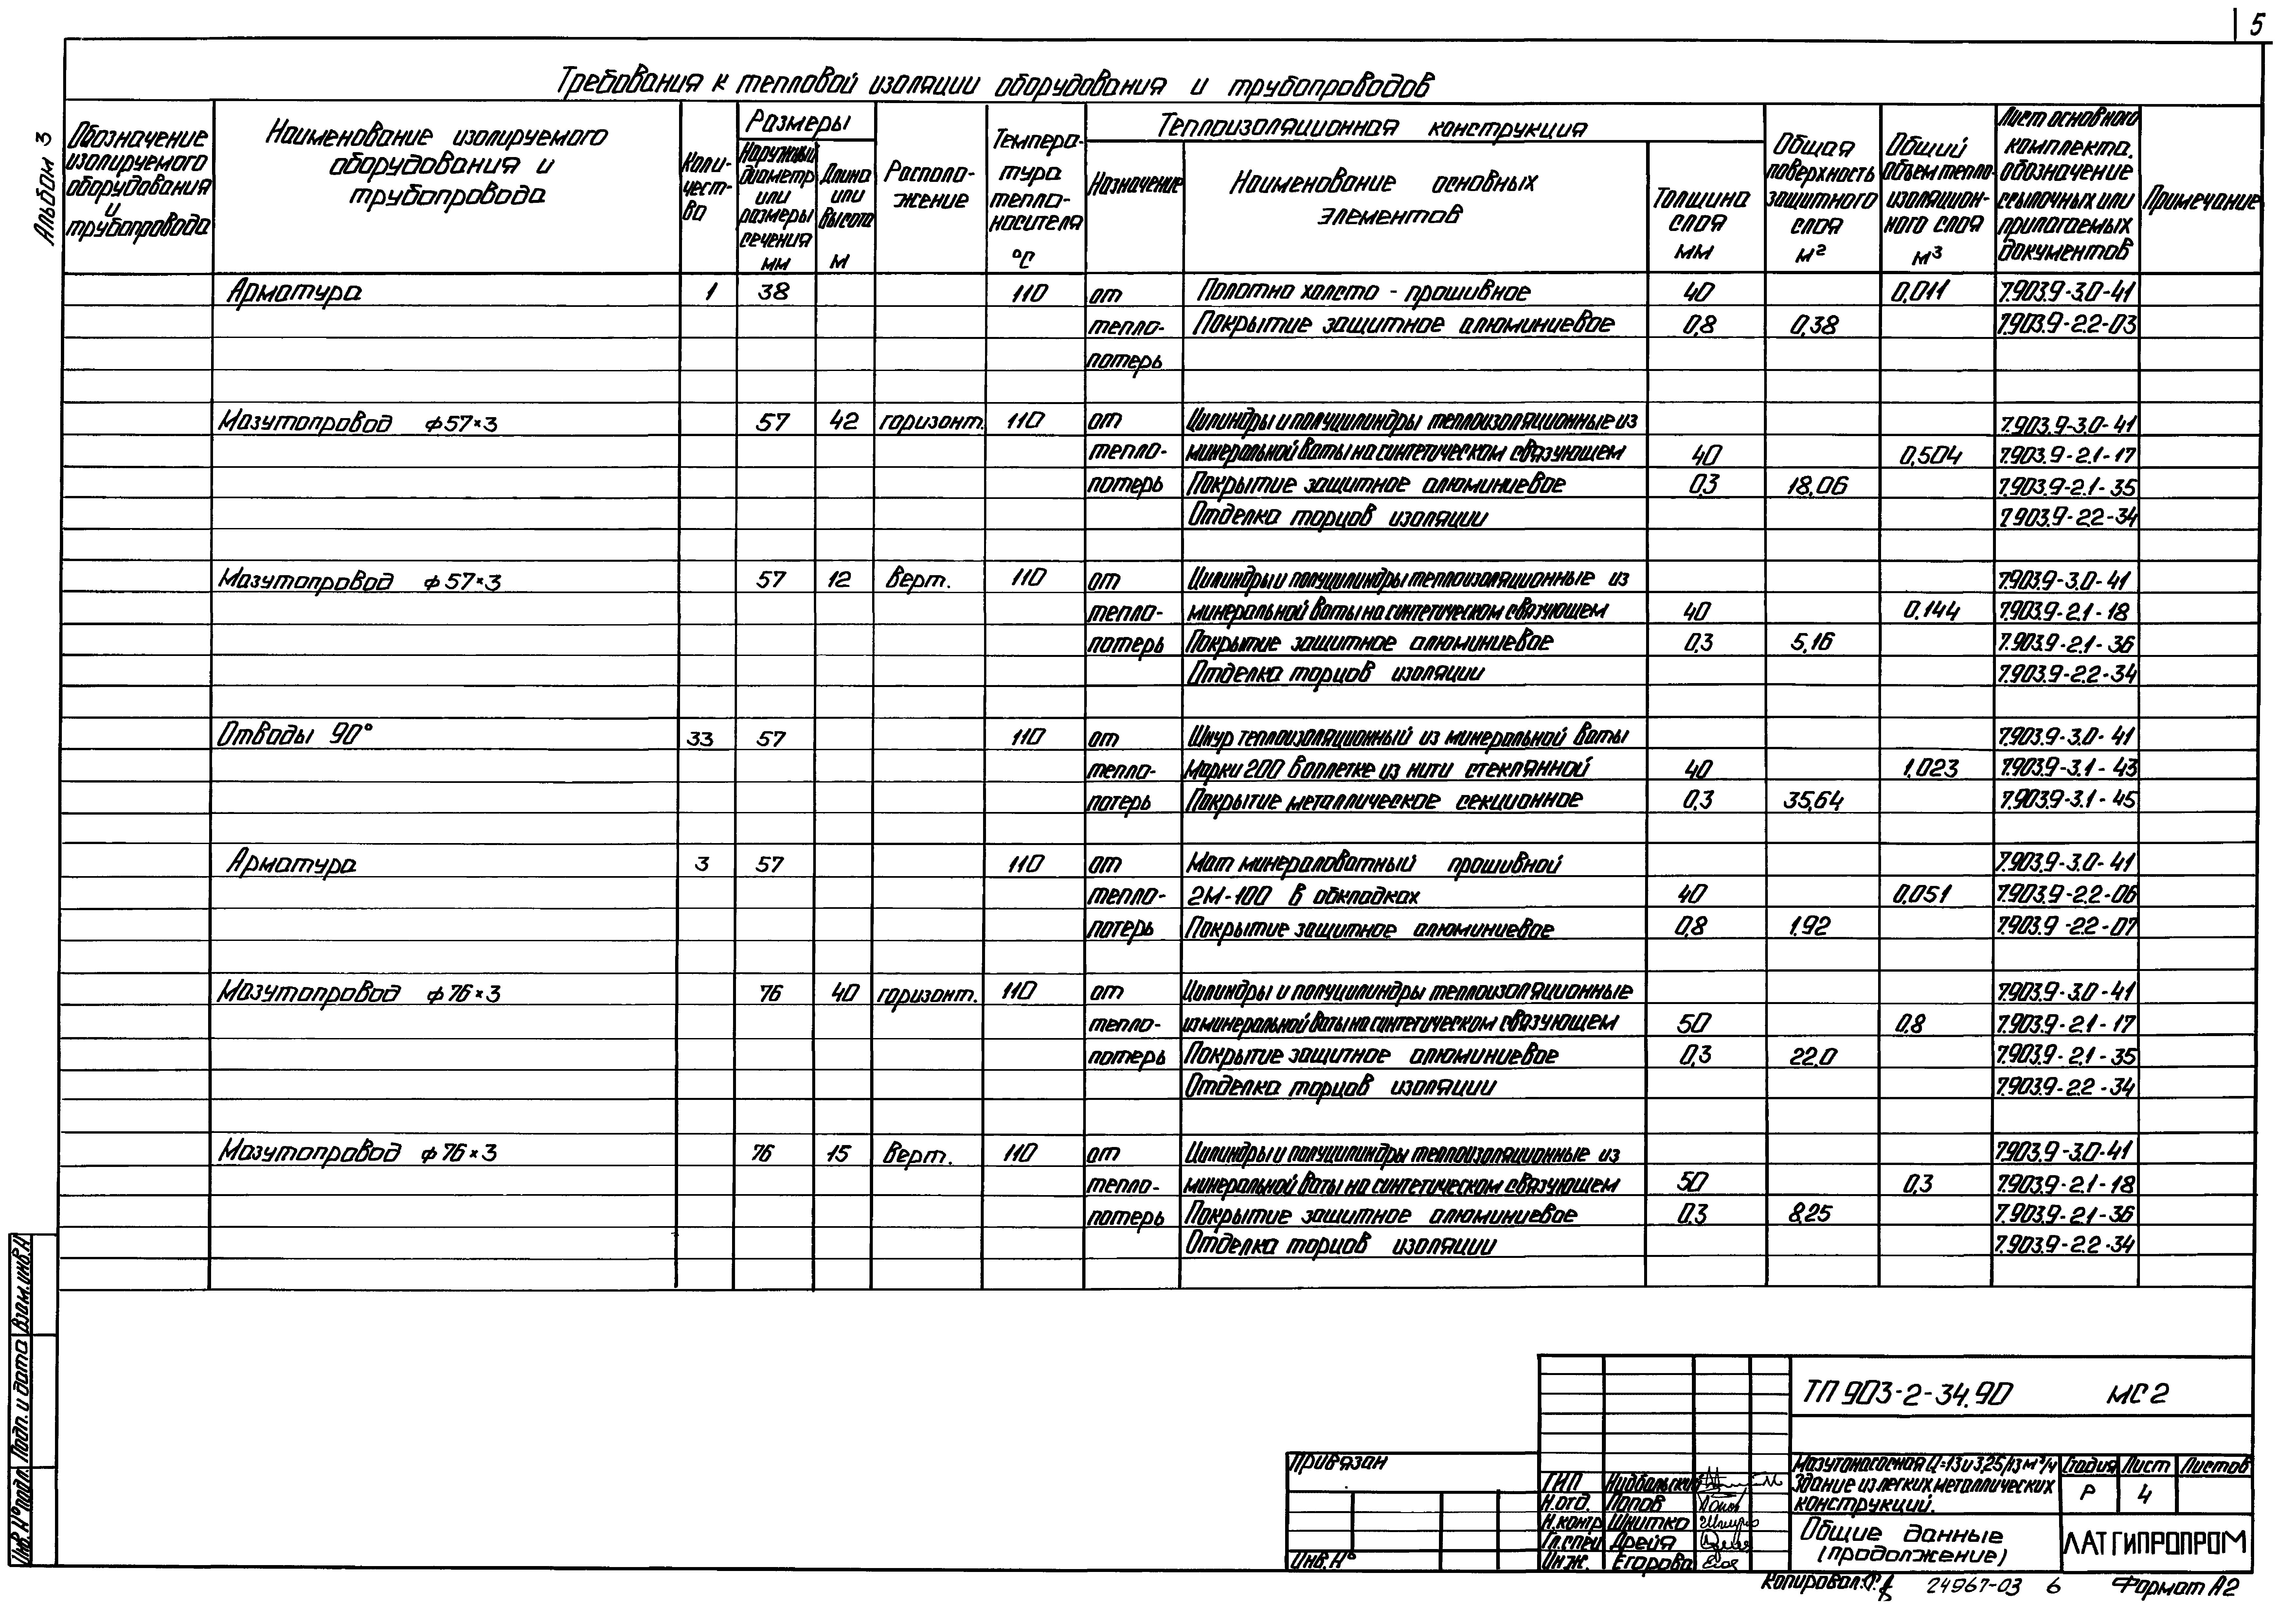 5
Альбом 3
Требования к тепловой изоляции оборудования и трубопроводов
Обозначение изолируемого оборудования и трубопровода
Наименование изолируемого оборудования и трубопровода
Коли-чест-во
Размеры
Наружный диаметр или размеры сечения мм
Длина или высота м
Располо-жение
Темпера-тура тепло-носителя °С
Теплоизоляционная конструкция
Назначение
Наименование основных элементов
Толщина слоя мм
Общая поверхность защитного слоя м²
Общий объем тепло-изоляцион-ного слоя м³
Лист основного комплекта. обозначение ссылочных или прилагаемых документов
Примечание
Арматура 1 38 110 от Полотно холсто-прошивное 40 0,011 7.903.9-3.0-41
тепло- Покрытие защитное алюминиевое 0,8 0,38 7.903.9-2.2-03
потерь
Мазутопровод ф57×3 57 42 горизонт. 110 от Цилиндры и полуцилиндры теплоизоляционные из 7.903.9-3.0-41
тепло- минеральной ваты на синтетическом связующем 40 0,504 7.903.9-2.1-17
потерь Покрытие защитное алюминиевое 0,3 18,06 7.903.9-2.1-35
Отделка торцов изоляции 7.903.9-2.2-34
Мазутопровод ф57×3 57 12 Верт. 110 от Цилиндры и полуцилиндры теплоизоляционные из 7.903.9-3.0-41
тепло- минеральной ваты на синтетическом связующем 40 0,144 7.903.9-2.1-18
потерь Покрытие защитное алюминиевое 0,3 5,16 7.903.9-2.1-36
Отделка торцов изоляции 7.903.9-2.2-34
Отводы 90° 33 57 110 от Шнур теплоизоляционный из минеральной ваты 7.903.9-3.0-41
тепло- Марки 200 в оплетке из нити стеклянной 40 1,023 7.903.9-3.1-43
потерь Покрытие металлическое секционное 0,3 35,64 7.903.9-3.1-45
Арматура 3 57 110 от Мат минераловатный прошивной 7.903.9-3.0-41
тепло- 2М-100 в обкладках 40 0,051 7.903.9-2.2-06
потерь Покрытие защитное алюминиевое 0,8 1,92 7.903.9-2.2-07
Мазутопровод ф76×3 76 40 горизонт. 110 от Цилиндры и полуцилиндры теплоизоляционные 7.903.9-3.0-41
тепло- из минеральной ваты на синтетическом связующем 50 0,8 7.903.9-2.1-17
потерь Покрытие защитное алюминиевое 0,3 22,0 7.903.9-2.1-35
Отделка торцов изоляции 7.903.9-2.2-34
Мазутопровод ф76×3 76 15 Верт. 110 от Цилиндры и полуцилиндры теплоизоляционные из 7.903.9-3.0-41
тепло- минеральной ваты на синтетическом связующем 50 0,3 7.903.9-2.1-18
потерь Покрытие защитное алюминиевое 0,3 8,25 7.903.9-2.1-36
Отделка торцов изоляции 7.903.9-2.2-34
Взам.инв.№
Подп. и дата
Инв.№ подл.
ТП 903-2-34.90 МС2
Привязан
Инв.№
ГИП
Н.отд. Попов
Н.контр Шнитко
Гл.спец Дрейя
Инж. Егорова
Мазутонасосная Q=13 и 3,25/13 м³/ч
Здание из легких металлических
конструкций.
Стадия Лист Листов
Р 4
Общие данные
(продолжение)
ЛАТГИПРОПРОМ
Копировал: 24967-03 6 Формат А2